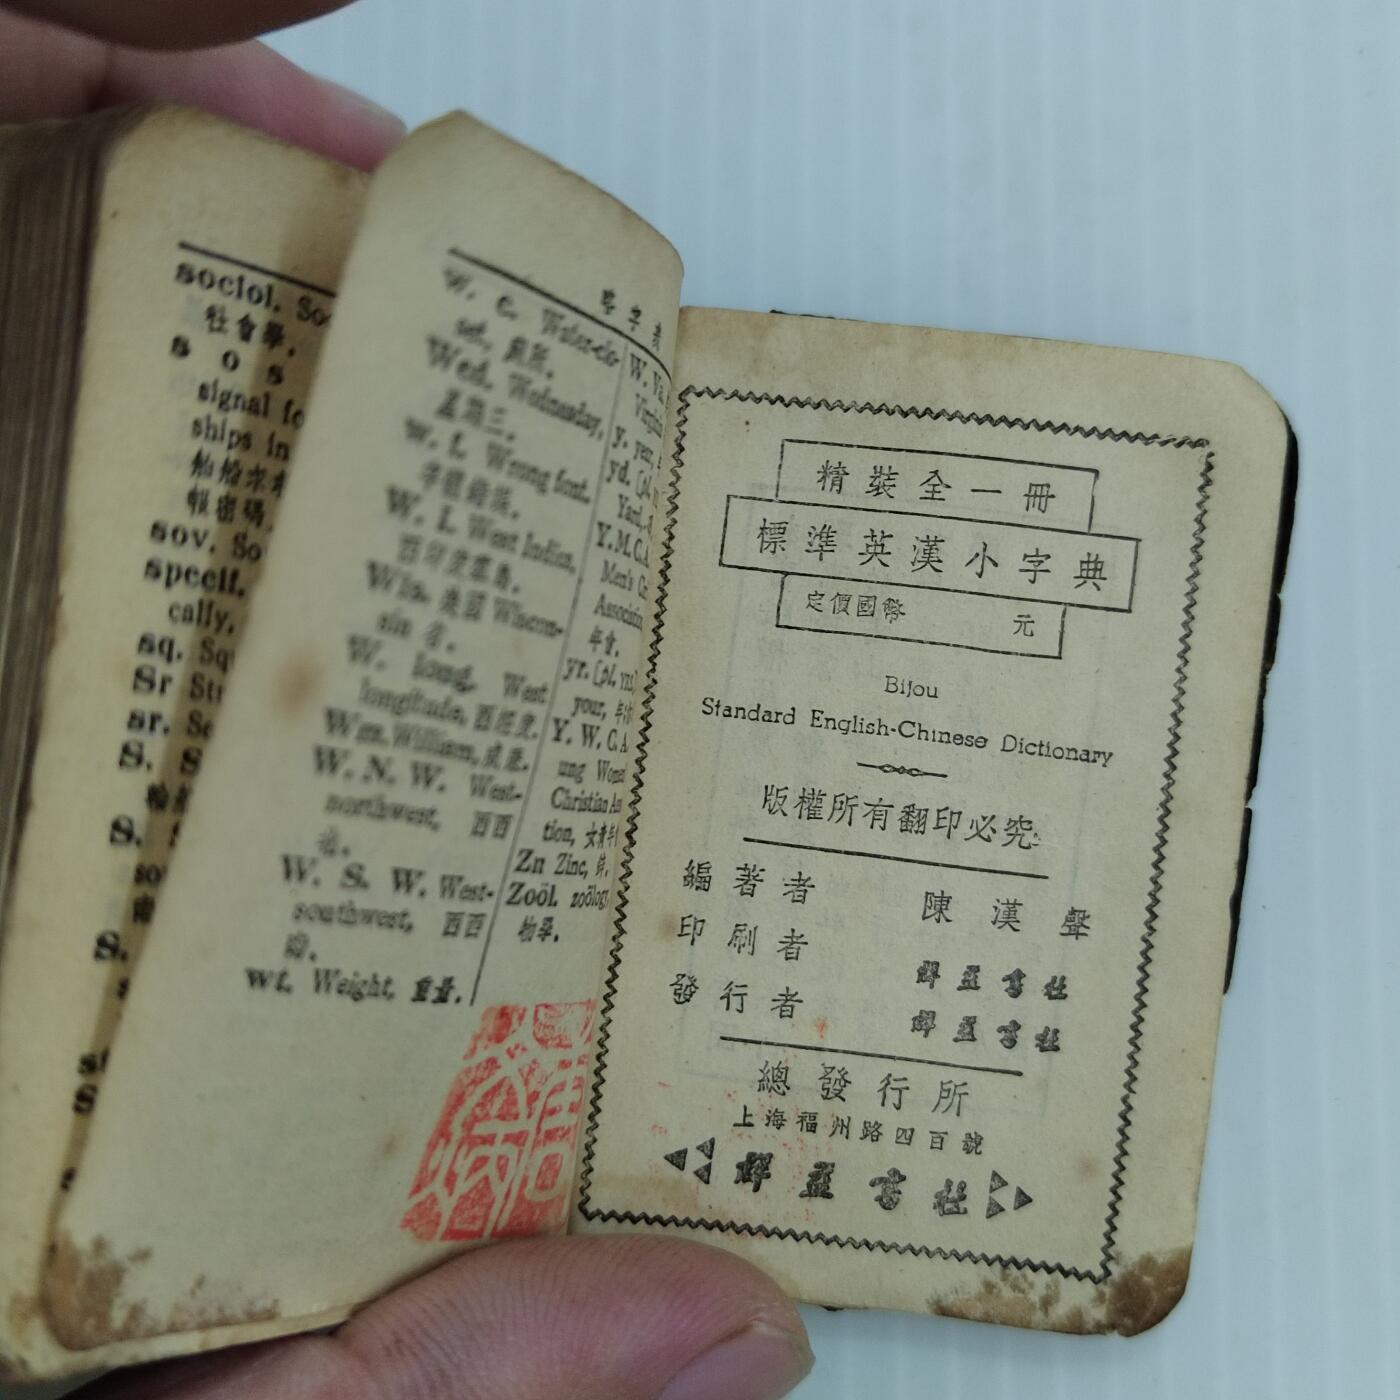 sociol. So
社會學.
S O S
signal fo
ships in
報密碼.
sov. So
specif.
cally,
sq. Squ
Sr Str
sr. Se
S. S
S.
略字表
W. C. Water-clo-
set, 廁所.
Wed. Wednesday,
星期三.
w. f. Wrong font.
W. I. West Indies,
Wis. 美國 Wiscon-
sin 省.
W. long. West
longitude, 西經度.
Wm. William, 威廉.
W. N. W. West-
northwest, 西西
北.
W. S. W. West-
southwest, 西西
南.
wt. Weight, 重量.
W. Va.
Virgin
y. year,
yd. (pl.
Yard,
Y.M.C.A.
Men's Ch
Associatio
年會.
yr. (pl. yrs)
your, 年
Y. W. C. A.
ung Women
Christian Ass
tion, 女青年
Zn Zinc, 鋅.
Zoöl. zoölogy
物學.
精裝全一冊
標準英漢小字典
定價國幣 元
Bijou
Standard English-Chinese Dictionary
版權所有翻印必究
編著者 陳漢聲
印刷者 群益書社
發行者 群益書社
總發行所
上海福州路四百號
群益書社